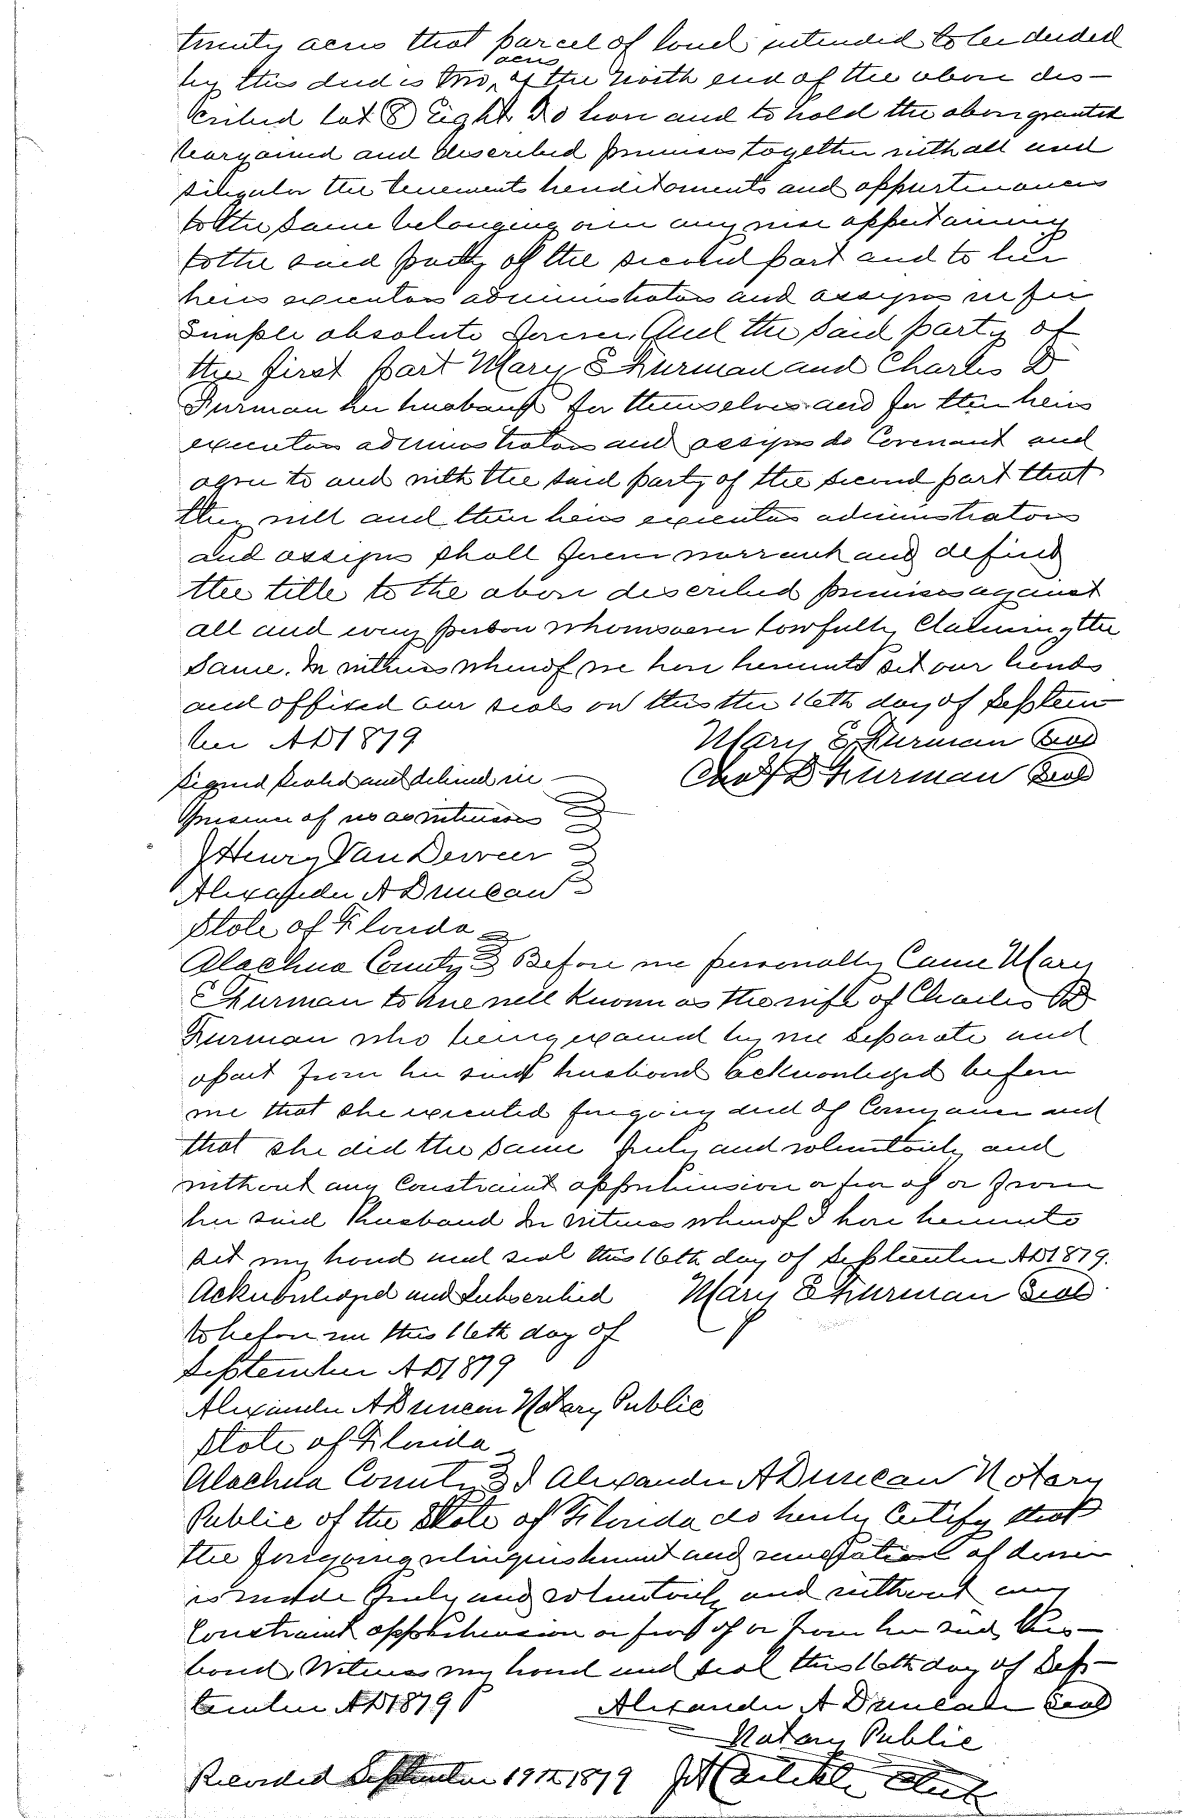 twenty acres that parcel of land intended to be deeded
acres
by this deed is two of the North end of the above des-
cribed Lot 8 Eight To have and to hold the above granted
bargained and described premises together with all and
singular the tenements hereditaments and appurtenances
to the same belonging or in any wise appertaining
to the said party of the second part and to her
heirs executors administrators and assigns in fee
simple absolute forever And the said party of
the first part Mary E Furman and Charles D
Furman her husband for themselves and for their heirs
executors administrators and assigns do Covenant and
agree to and with the said party of the second part that
they will and their heirs executors administrators
and assigns shall forever warrant and defend
the title to the above described premises against
all and every person whomsoever lawfully Claiming the
Same. In witness whereof we have hereunto set our hands
and affixed our seals on this the 16th day of Septem-
ber AD 1879 Mary E Furman Seal
Signed Sealed and delivered in Chas D Furman Seal
presence of us as witnesses
J Henry Van Derveer
Alexander A Duncan
State of Florida
Alachua County Before me personally Came Mary
E Furman to me well known as the wife of Charles D
Furman who being examined by me Separate and
apart from her said husband acknowledged before
me that she executed foregoing deed of Conveyance and
that she did the same freely and voluntarily and
without any Constraint apprehension or fear of or from
her said Husband In witness whereof I have hereunto
set my hand and seal this 16th day of September AD 1879.
Acknowledged and Subscribed Mary E Furman Seal
to before me this 16th day of
September AD 1879
Alexander A Duncan Notary Public
State of Florida
Alachua County I Alexander A Duncan Notary
Public of the State of Florida do hereby Certify that
the foregoing relinquishment and renunciation of dower
is made freely and voluntarily and without any
Constraint apprehension or fear of or from her said Hus-
band. Witness my hand and seal this 16th day of Sep-
tember AD 1879 Alexander A Duncan Seal
Notary Public
Recorded September 19th 1879 Clerk